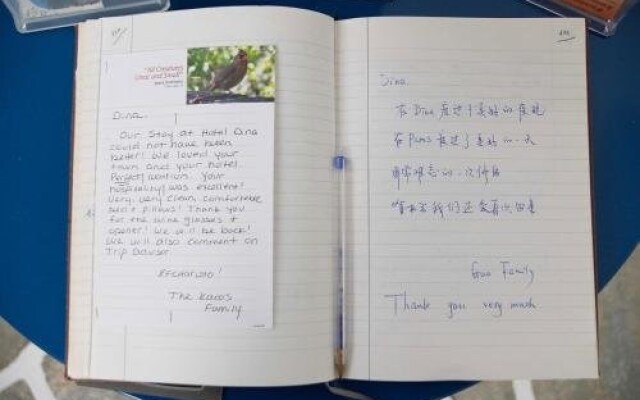 "All Creatures
Great and Small"
Dina.
Our stay at Hotel Dina
could not have been
better! We loved your
town and your hotel.
Perfect location. Your
hospitality was excellent!
Very, very clean, comfortable
bed + pillows! Thank you
for the wine glasses +
opener! We will be back!
We will also comment on
Trip Advisor.
Efcharisto!
The
Family
Dina.
在 Dina 度过了美好的
在 Paros 度过了美好的一天
非常难忘的一次
我们还会再次
Guo Family
Thank you very much